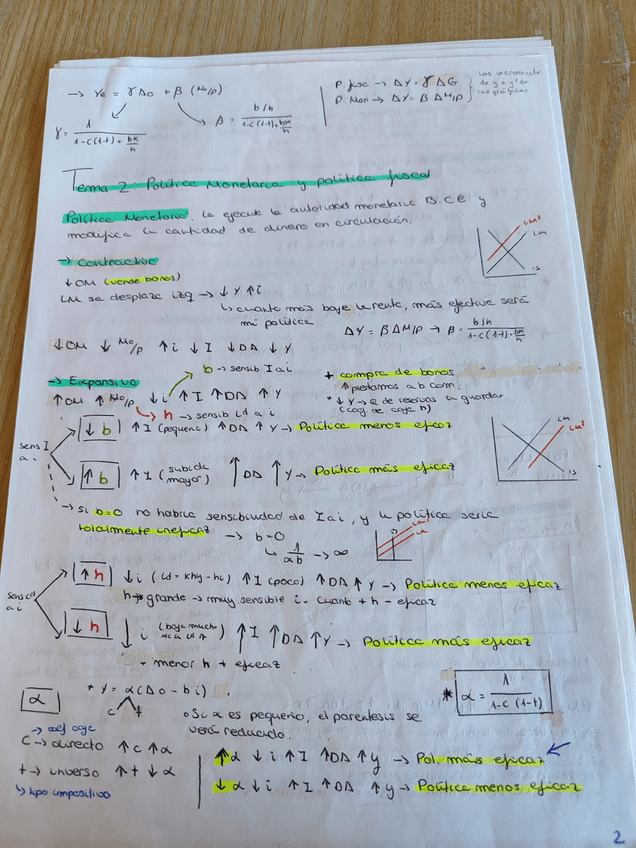 → Ye = γ Δo + β (Mo/p)
γ = 1 / 1-c(1-t) + bk/h
β = b/h / 1-c(1-t) + bk/h
P. fisc → ΔY = γ ΔG
P. Mon → ΔY = β ΔM/P
Los incrementos de y a y' en las gráficas
Tema 2: Política Monetaria y política fiscal
Política Monetaria: la ejecuta la autoridad monetaria B.C.E y
modifica la cantidad de dinero en circulación.
→ Contractiva
↓OM (vende bonos)
LM se desplaza izq → ↓Y ↑i
↳ cuanto más baje la renta, más efectiva será
mi política
LM'
LM
IS
ΔY = β ΔM/P → β = b/h / 1-c(1-t)+bk/h
↓OM ↓ Mo/p ↑i ↓I ↓DA ↓Y
b → sensib I a i
→ Expansiva
↑OM ↑ Mo/p ↓i ↑I ↑DA ↑Y
h → sensib Ld a i
+ compra de bonos
↑ préstamos a b com.
* ↓Y → % de reservas a guardar
(coef de caja h)
sens I a i
↓b ↑I (pequeño) ↑DA ↑Y → Política menos eficaz
↑b ↑I (subida mayor) ↑DA ↑Y → Política más eficaz
LM
LM'
IS
→ Si b=0 no habría sensibilidad de I a i, y la política sería
totalmente ineficaz → b=0
↳ 1/αb → ∞
sens Ld a i
↑h ↓i (Ld = khy-hi) ↑I (poco) ↑DA ↑Y → Política menos eficaz
h → grande → muy sensible i. Cuanto + h - eficaz
↓h ↓i (baja mucho) ↑I ↑DA ↑Y → Política más eficaz
• menor h + eficaz
α
* Y = α(Δo - bi)
c t
* α = 1 / 1-c(1-t)
• Si α es pequeño, el paréntesis se
verá reducido.
→ coef caja
C → directo ↑c ↑α
t → inverso ↑t ↓α
↳ tipo impositivo
↑α ↓i ↑I ↑DA ↑y → Pol. más eficaz
↓α ↓i ↑I ↑DA ↑y → Política menos eficaz
2